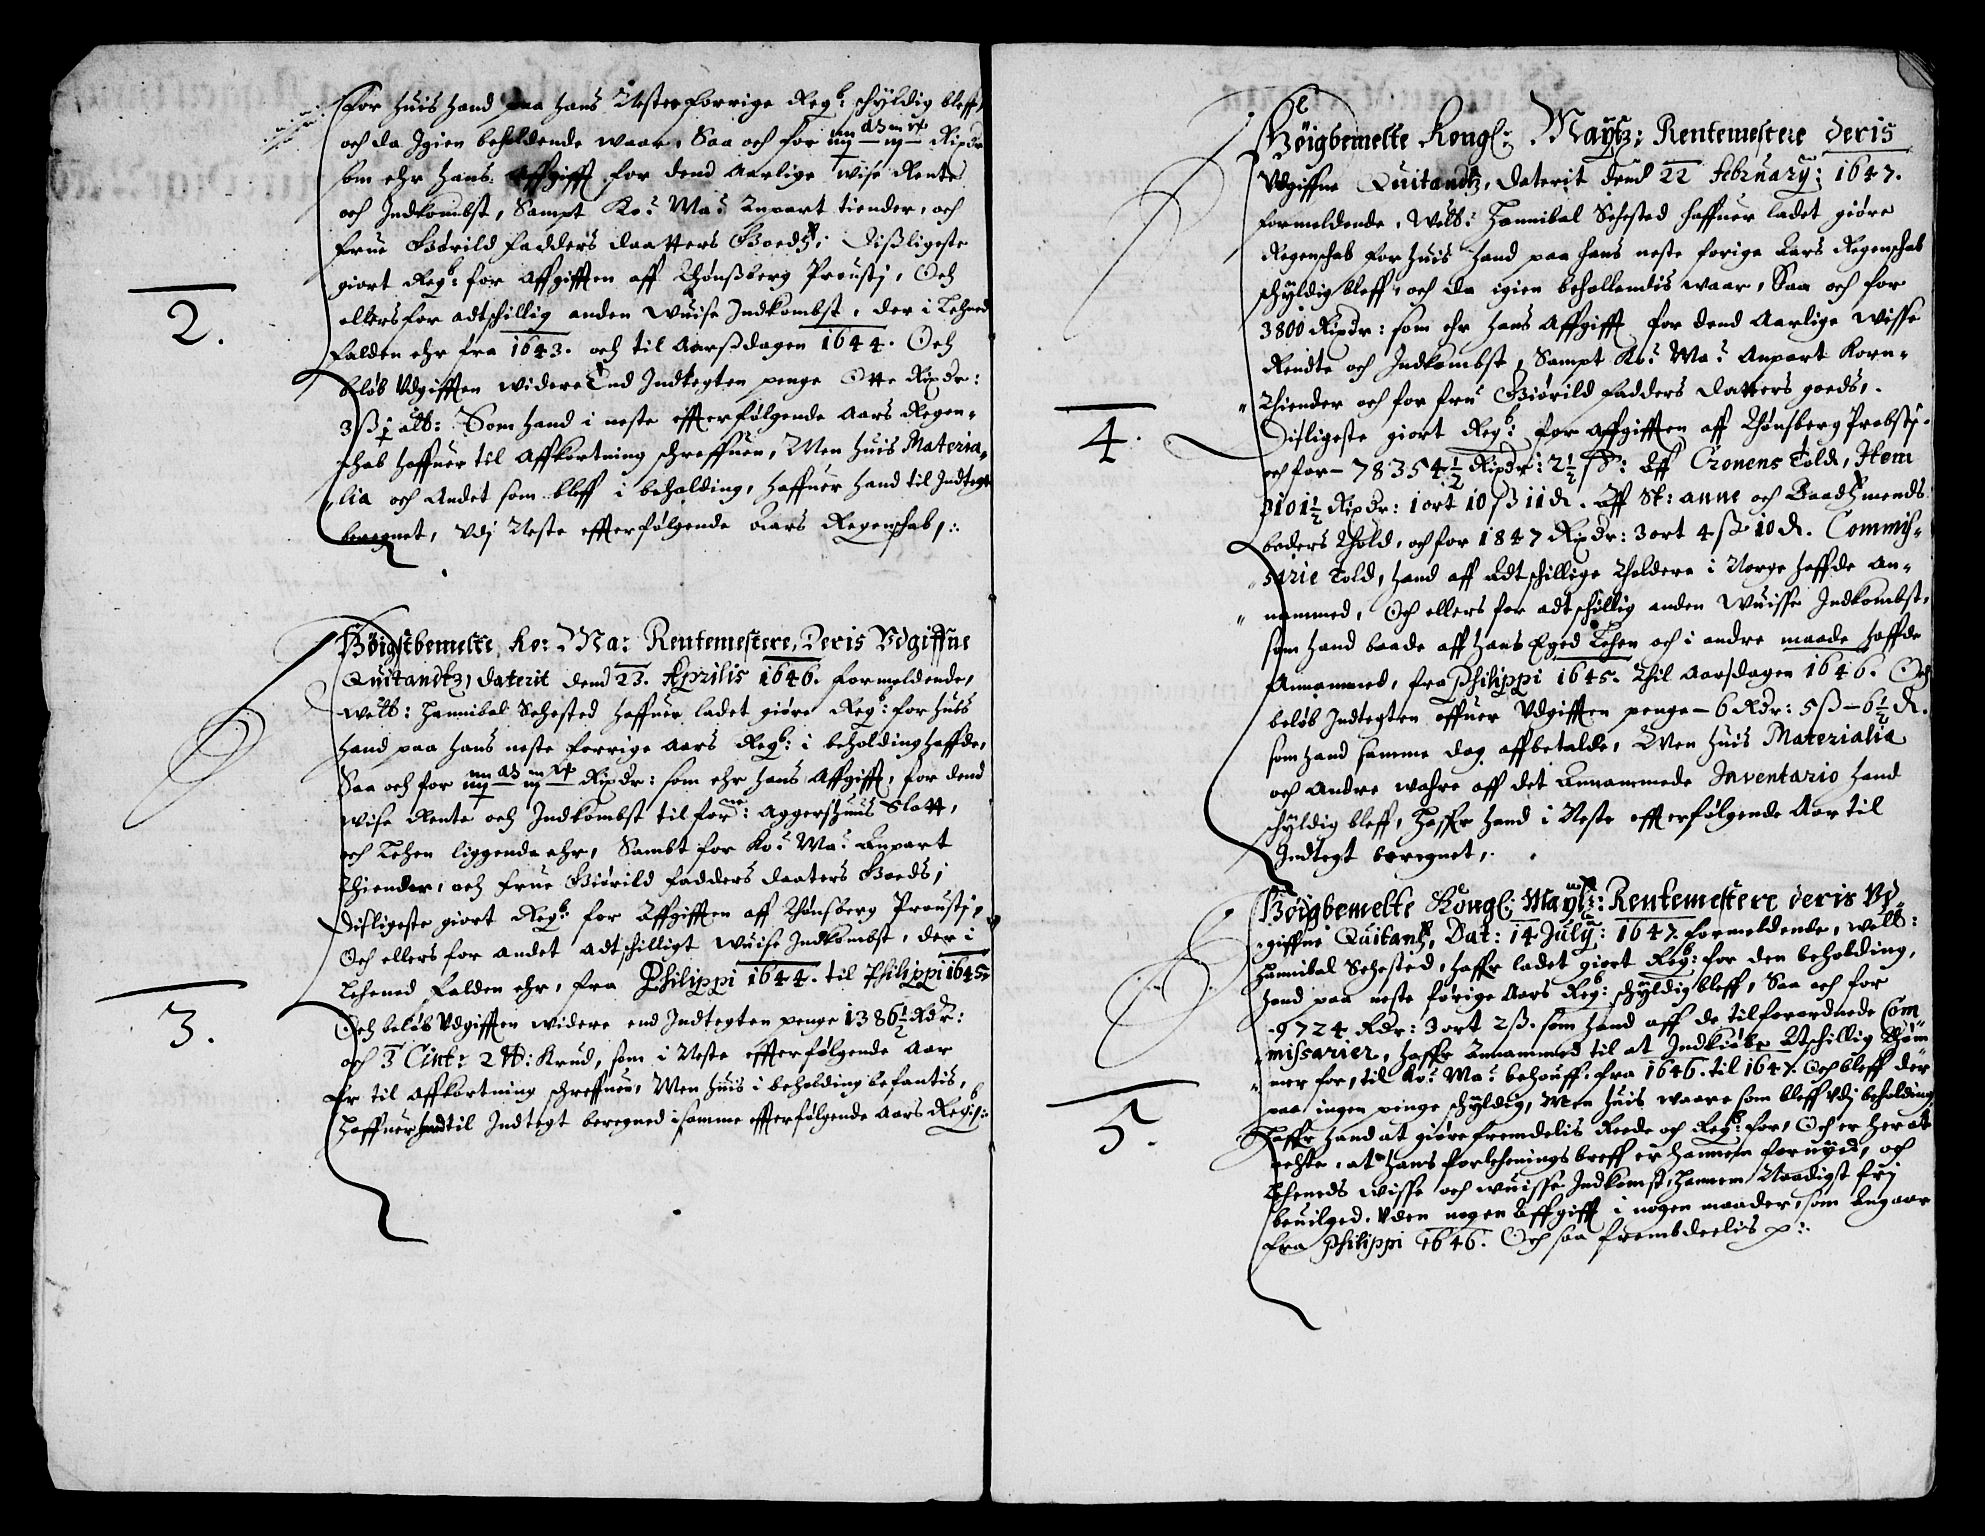 for huis hand paa hans Nesteforrige Regb: schyldig bleff,
och da Igien beholdende waar, Saa och for Rixdr
som ehr hans Affgifft for dend Aarlige wise Rente
och Indkombst, Sampt Ko: Ma: Anpart tiender, och
frue Giørild fadders daatters Goedz; Dißligeste
giort Regb: for Affgifften aff Thønßberg Proustj, Och
ellers for adtschillig anden wuise Indkombst, der i Lehned
2.
falden ehr fra 1643. och til Aarßdagen 1644. Och
beløb Vdgifften widere End Indtegten penge Otte Rixdr:
3 ß alb: Som hand i neste effterfølgende Aars Regen-
schab haffuer til Affkortning schreffuen, Men huis Materia-
lia och Andet som bleff i beholding, haffuer hand til Indtegt
beregnet, Vdj Neste effterfølgende Aars Regenschab,:
Høigstbemelte, Ko: Ma: Rentemestere, Deris Vdgiffne
Quitandtz, daterit dend 23. Aprilis 1646. formeldende,
welb: Hannibal Sehested haffuer ladet giøre Regb: for huis
hand paa hans neste forrige Aars Regb: i beholding haffde,
Saa och for Rixdr: som ehr hans Affgifft, for dend
wise Rente och Indkombst til forne: Aggershuus Slott,
och Lehen liggende ehr, Sambt for Ko: Ma: Anpart
Thiender, och frue Giørild fadders daaters Goeds;
Disligeste giort Regb: for Affgifften aff Thønsberg Proustj,
Och ellers for andet adtschilligt wuise Indkombst, der i
Lehened falden ehr, fra Philippi 1644. til Philippi 1645.
3.
Och beløb Vdgifften widere end Indtegten penge 1386½ Rdr:
och 3 Cint: 2 ℔: Krud, som i Neste effterfølgende Aar
Er til Affkortning schreffuen, Men huis i beholding befantis,
Haffuer hand til Indtegt beregned i samme effterfølgende Aars Regb:
Høigbemelte Kongl: Maytz: Rentemestere deris
Vdgiffne Quitandtz, daterit dend 22 February: 1647.
formeldende, Welb: Hannibal Sehested haffuer ladet giøre
Regenschab for huis hand paa hans neste forige Aars Regenschab
schyldig bleff, och da igien behollendis waar, Saa och for
3800 Rixdr: som ehr hans Affgifft for dend Aarlige wisse
Rendte och Indkombst, Sampt Ko: Ma: Anpart Korn-
Thiender och for fru Giørild fadders datters goeds,
4.
Disligeste giort Regb: for Affgifften aff Thønsberg Probstj.
och for - 78354½ Rixdr: 2½ ß: Aff Cronens Told, Item
3101½ Rixdr: 1 ort 10 ß 11 d. Aff St: anne och Baadtzmends
boders Thold, och for 1847 Rixdr: 3 ort 4 ß 10 d. Commis-
sarie Told, hand aff Adtschillige Tholdere i Norge haffde an-
nammed, Och ellers for adtschillig anden wuisse Indkombst,
som hand baade aff hans Eged Lehen och i andre maade haffde
Annammed, fra Philippi 1645. Thil Aarsdagen 1646. Och
beløb Indtegten offuer Vdgifften penge - 6 Rdr: 5 ß - 6½ d.
som hand samme dag affbetalde, Men huis Materialia
och Andre wahre aff det Annammede Inventario hand
schyldig bleff, Haffr hand i Neste effterfølgende Aar til
Indtegt beregnet,
Høigbemelte Kongl: Maytz: Rentemestere deris Vd-
giffne Quitantz, Dat: 14 July: 1647. formeldende, welb:
Hannibal Sehested, haffr ladet giort Regb: for den beholding,
hand paa neste førige Aars Regb: schyldig bleff, Saa och for
9724 Rdr: 3 ort 2 ß. som hand aff de tilforordnede Com
missarier, haffr Annammed til at Indkiøbe Atschillig Thøm
mer for, til Ko: Ma: behouff. fra 1646. til 1647. Och bleff der
5.
paa ingen penge schyldig, Men huis waare som bleff Vdj beholding
Haffr hand at giøre fremdelis Reede och Regb: for, Och er her at
achte, at hans forlehenings breff er hannem fornyed, och
Lhenets wisse och wuisse Indkomst, Hannem Naadigst frj
beuilged. Vden nogen Affgifft i nogen maader, som Angaar
fra Philippi 1646. Och saa frembdeelis p: